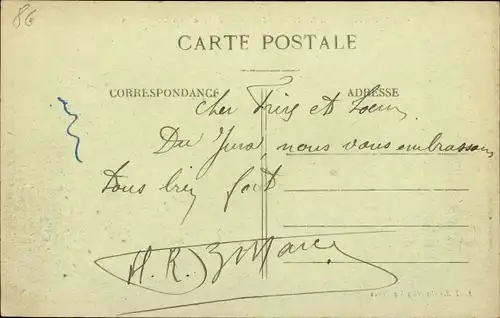 86
CARTE POSTALE
CORRESPONDANCE
ADRESSE
Cher Frère et Soeur
Du Jura, nous vous embrassons
tous bien fort
H. R.